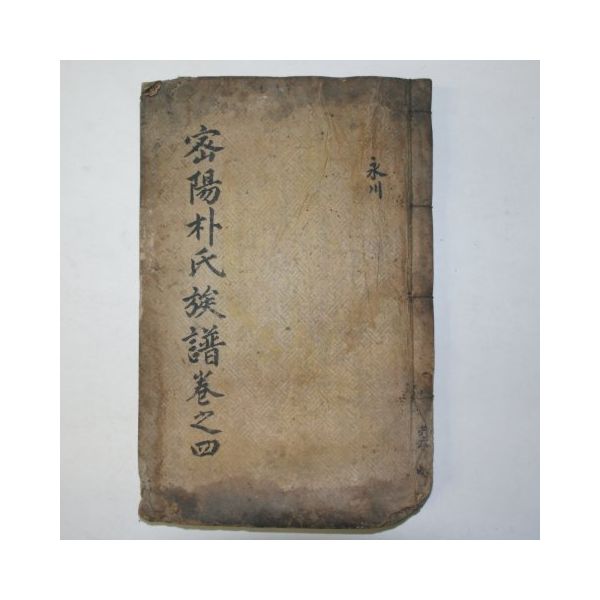 永川
密陽朴氏族譜卷之四